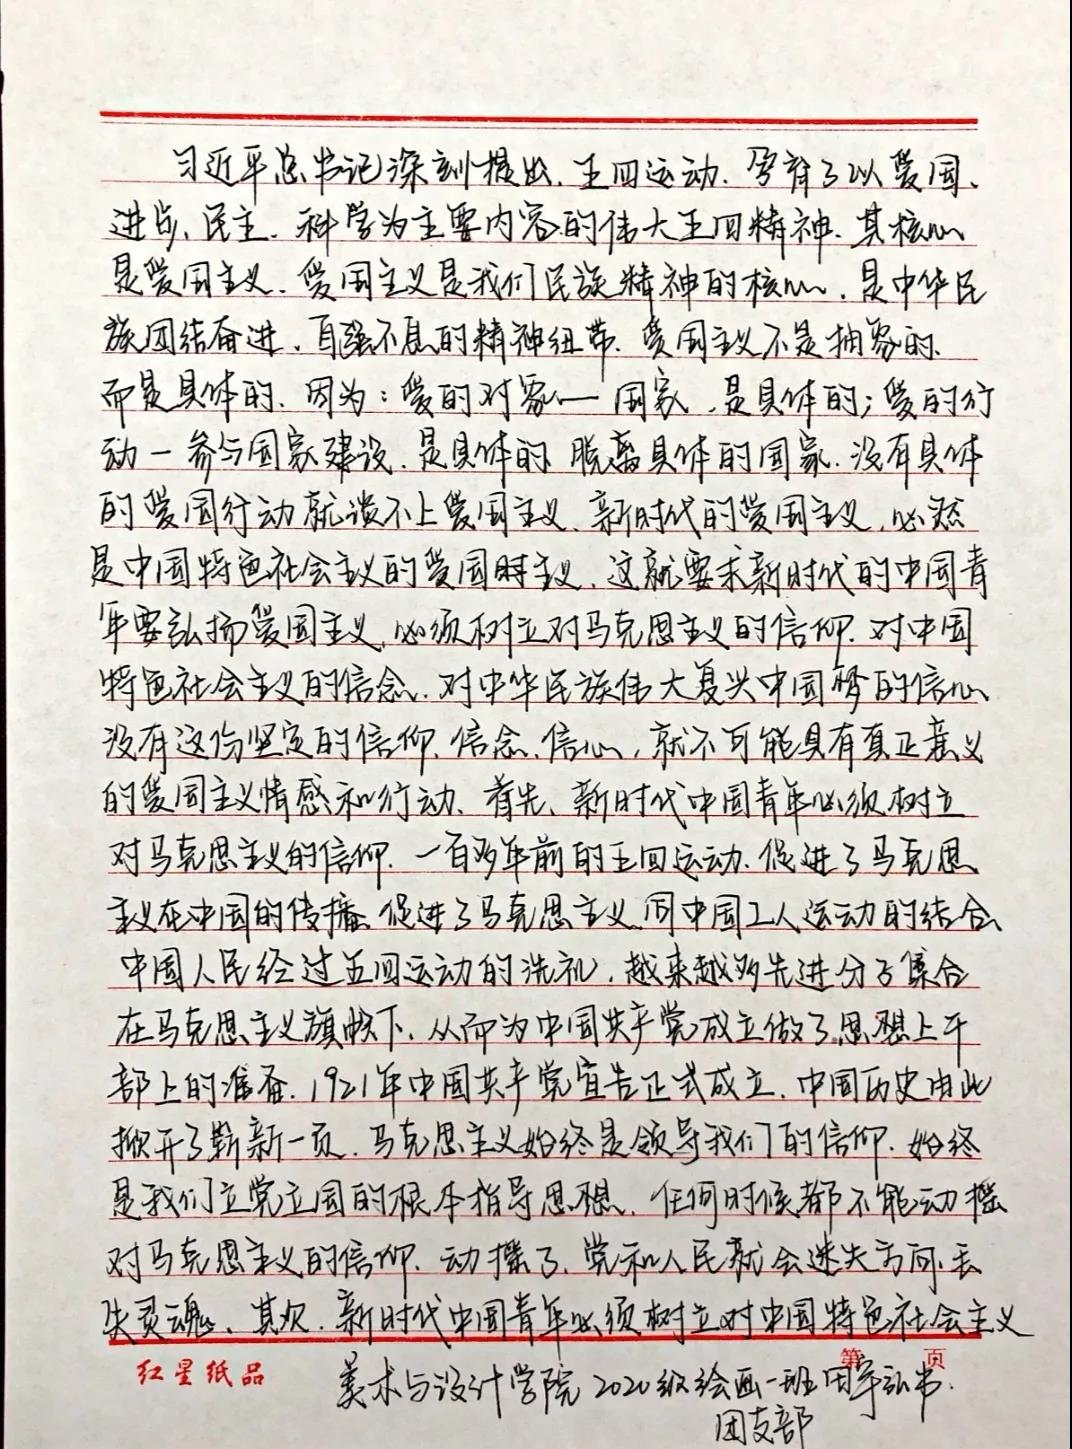 习近平总书记深刻提出、五四运动、孕育了以爱国、
进步、民主、科学为主要内容的伟大五四精神、其核心
是爱国主义、爱国主义是我们民族精神的核心、是中华民
族团结奋进、自强不息的精神纽带、爱国主义不是抽象的、
而是具体的、因为：爱的对象一国家、是具体的；爱的行
动一参与国家建设、是具体的 脱离具体的国家、没有具体
的爱国行动就谈不上爱国主义、新时代的爱国主义、必然
是中国特色社会主义的爱国主义、这就要求新时代的中国青
年要弘扬爱国主义、必须树立对马克思主义的信仰、对中国
特色社会主义的信念、对中华民族伟大复兴中国梦的信心
没有这份坚定的信仰、信念、信心、就不可能具有真正意义
的爱国主义情感和行动、首先、新时代中国青年必须树立
对马克思主义的信仰、一百多年前的五四运动、促进了马克思
主义在中国的传播、促进了马克思主义同中国工人运动的结合
中国人民经过五四运动的洗礼、越来越多先进分子集合
在马克思主义旗帜下、从而为中国共产党成立做了思想上干
部上的准备、1921年中国共产党宣告正式成立、中国历史由此
掀开了崭新一页、马克思主义始终是领导我们的信仰、始终
是我们立党立国的根本指导思想、任何时候都不能动摇
对马克思主义的信仰、动摇了、党和人民就会迷失方向、丢
失灵魂、其次、新时代中国青年必须树立对中国特色社会主义
红星纸品 第 页
美术与设计学院2020级绘画一班团宣弘书、
团支部